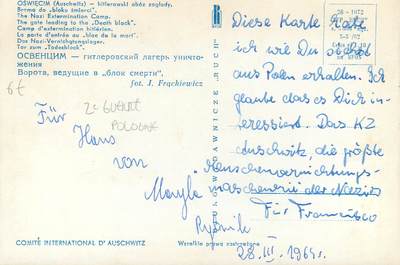 OŚWIĘCIM (Auschwitz) — hitlerowski obóz zagłady.
Brama do „bloku śmierci".
The Nazi Extermination Camp.
The gate leading to the "Death block".
Camp d'extermination hitlérien.
La porte d'entrée au „bloc de la mort".
Das Nazi-Vernichtungslager.
Tor zum „Todesblock".
ОСВЕНЦИМ — гитлеровский лагерь уничто-
жения
Ворота, ведущие в „блок смерти".
fot. J. Frąckiewicz
6€
2e GUERRE
POLOGNE
Für
Hans
von
Maryla
Rybnik
COMITÉ INTERNATIONAL D'AUSCHWITZ
Wszelkie prawa zastrzeżone
RUCH
Diese Karte hatte
ich wie Du
aus Polen erhalten. Ich
glaube das es Dich in-
teressiert. Das KZ
Auschwitz, die größte
Menschenvernichtungs-
maschenerie der Nazis
Für Francisco
28. III. 1965r.